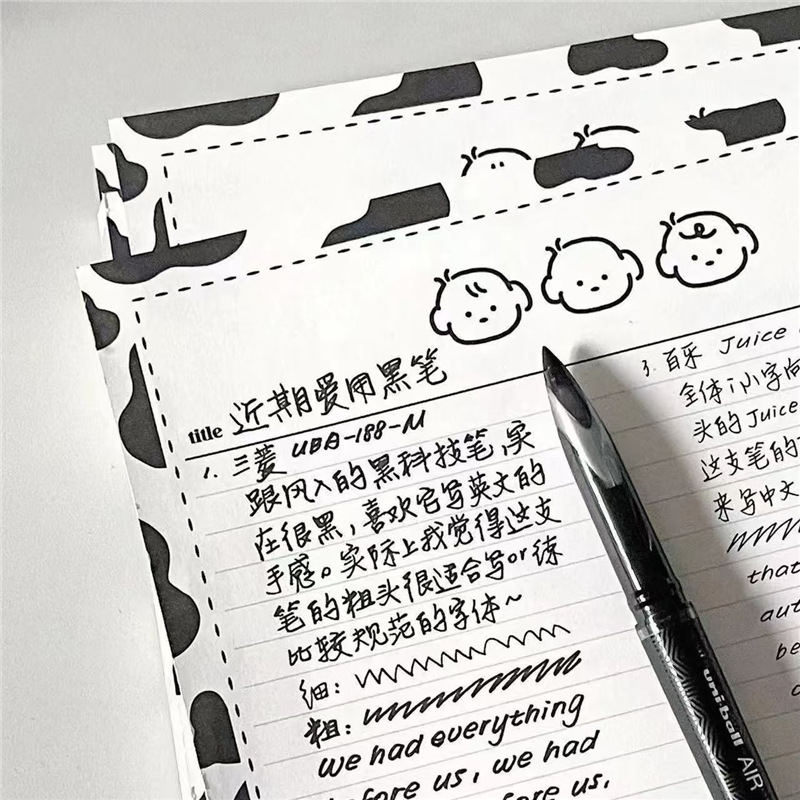 title 近期爱用黑笔
1. 三菱 UBA-188-M
跟风入的黑科技笔,实
在很黑,喜欢它写英文的
手感。实际上我觉得这支
笔的粗头很适合写or练
比较规范的字体~
细:
粗:
we had everything
before us, we had
fore us,
3. 百乐 Juice
全体i小字向
头的Juice
这支笔的
来写中文
that
aut
be
uni-ball AIR